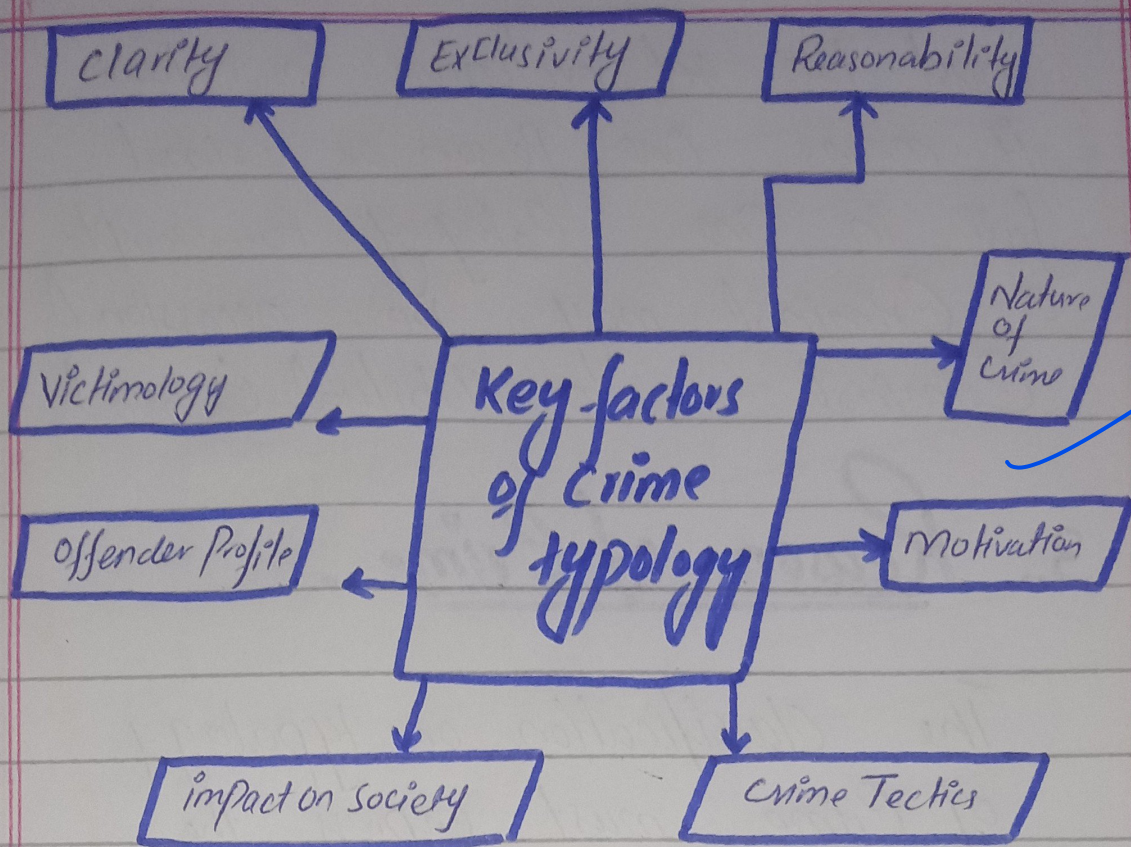 Clarity
Exclusivity
Reasonability
Nature
of
Crime
Victimology
Key factors
of Crime
typology
Offender Profile
Motivation
impact on society
Crime Tectics